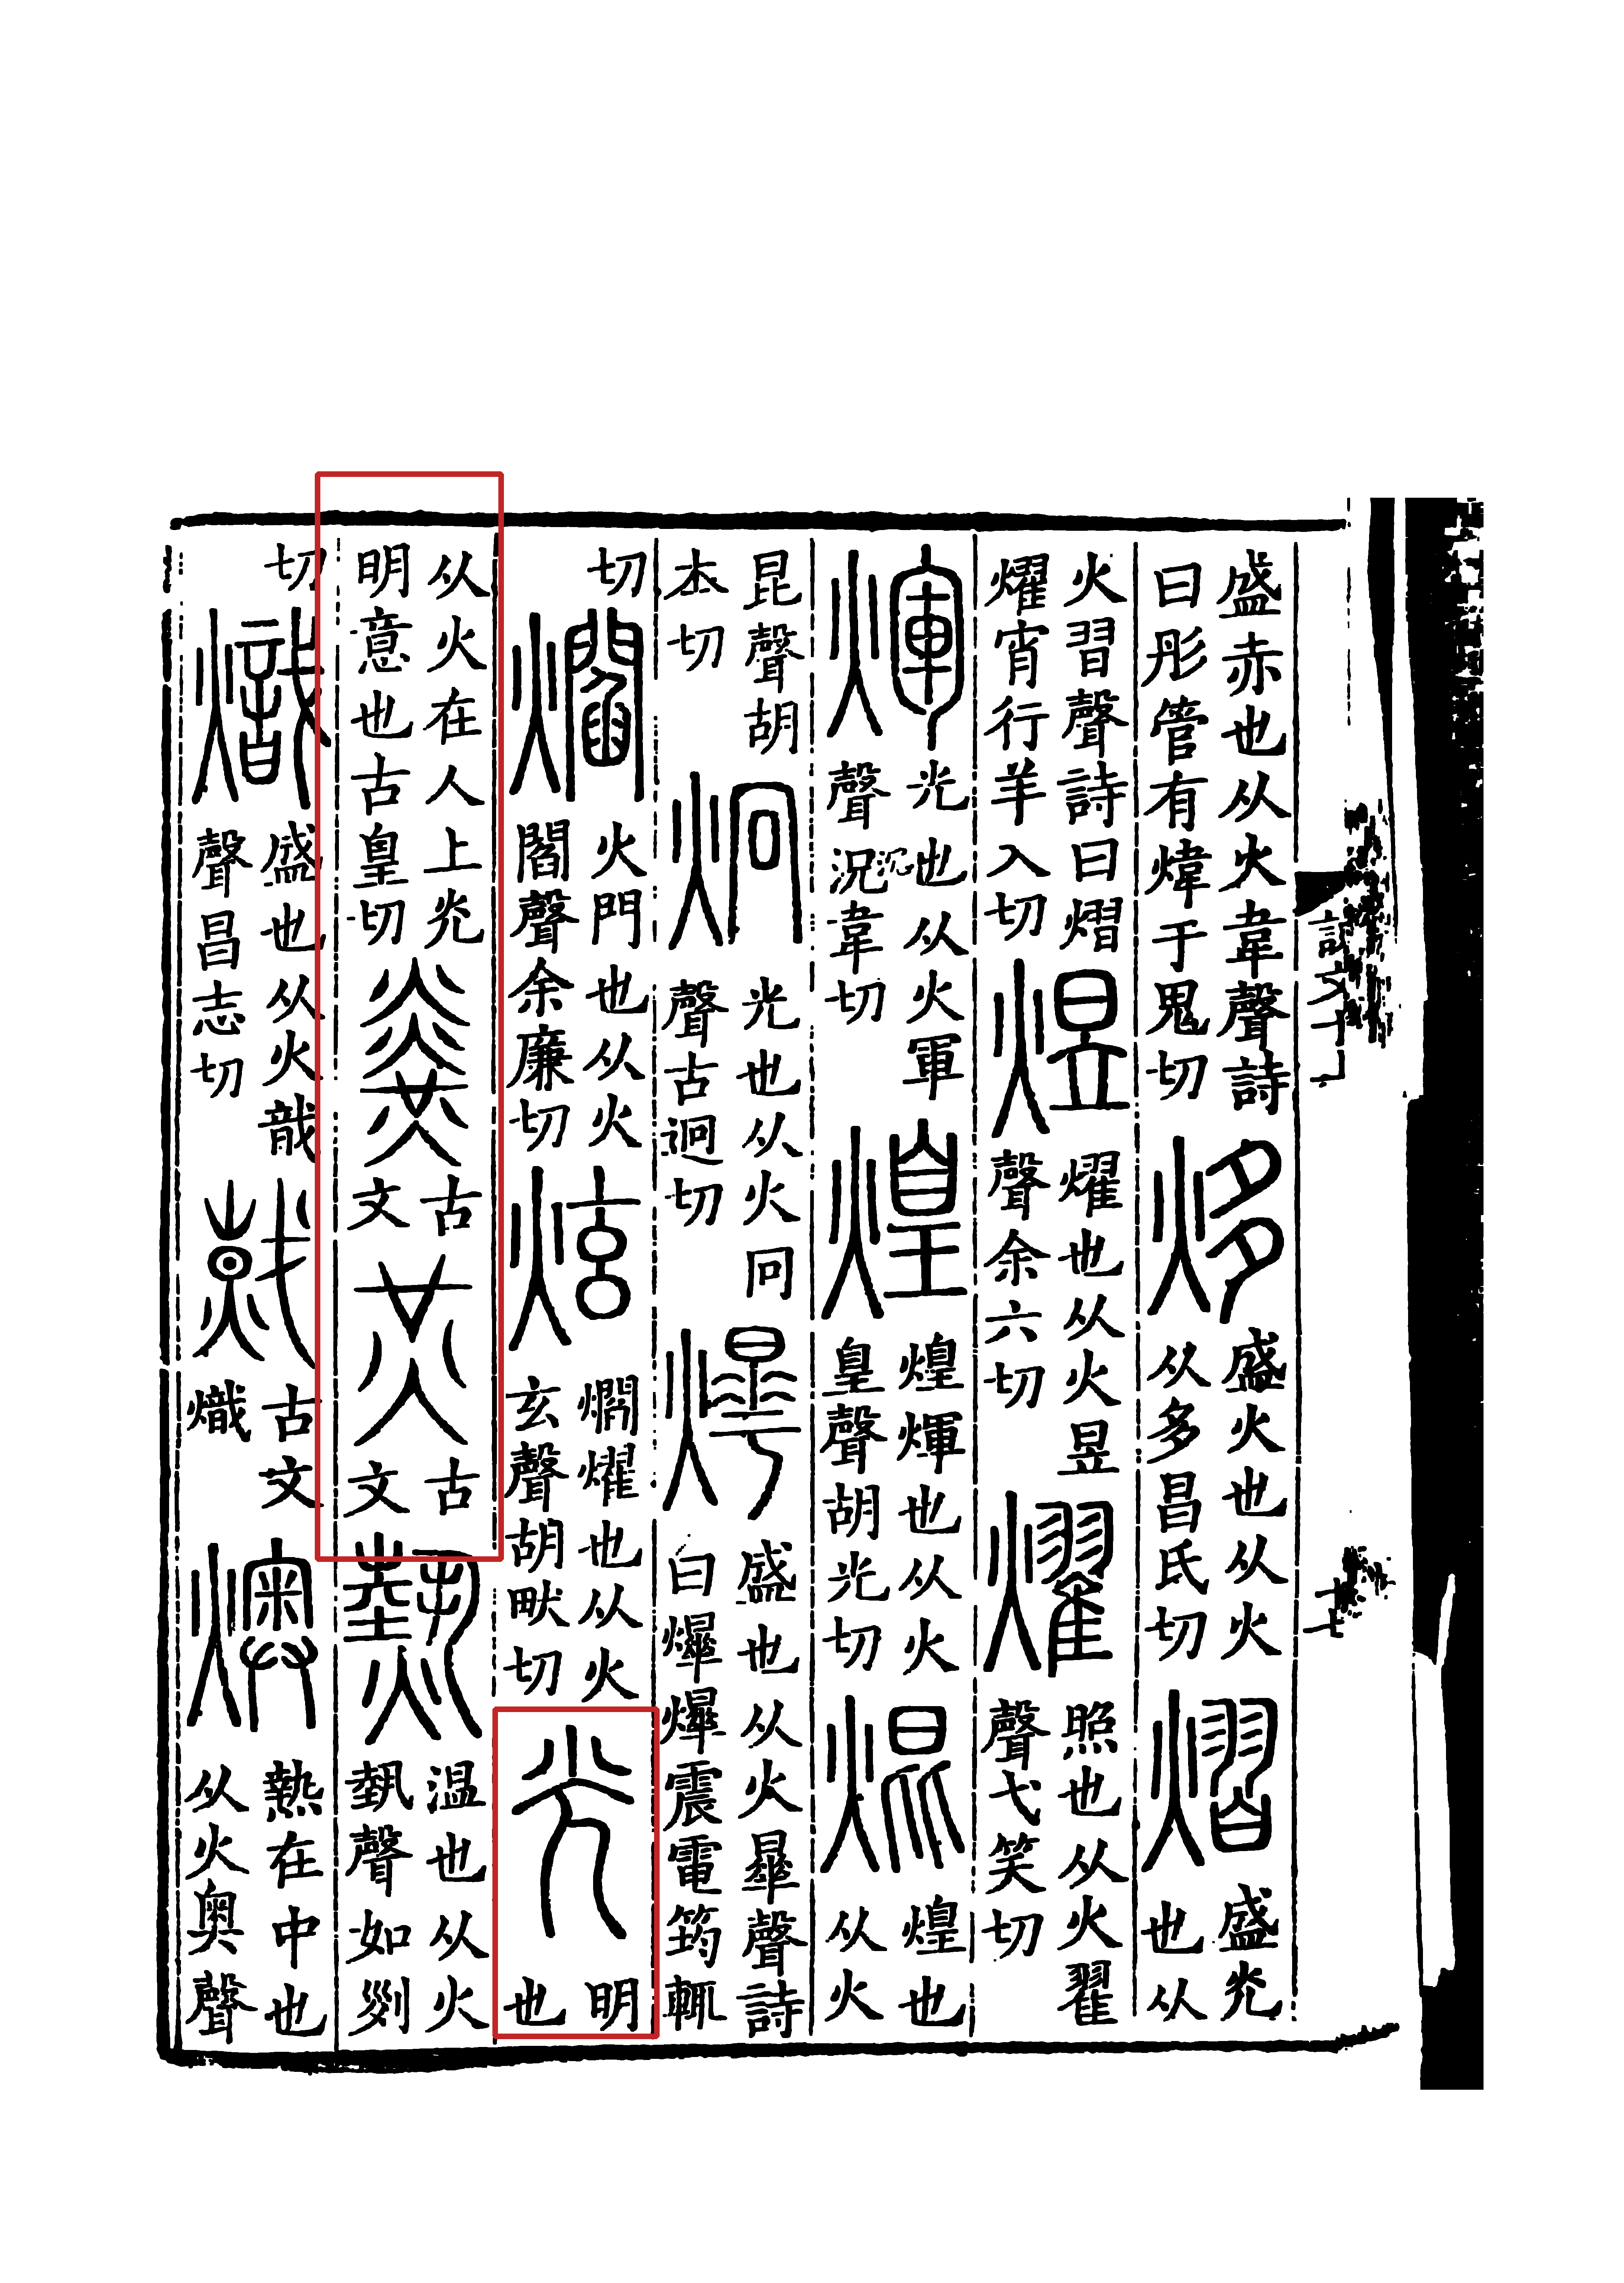 盛赤也从火韋聲詩
曰彤管有煒于鬼切
炵
盛火也从火
从多昌氏切
熠
盛光
也从
火習聲詩曰熠
燿宵行羊入切
煜
燿也从火昱
聲余六切
燿
照也从火翟
聲弋笑切
煇
光也从火軍
聲況韋切
煌
煌煇也从火
皇聲胡光切
焜
煌也
从火
昆聲胡
本切
炯
光也从火冋
聲古迥切
爗
盛也从火曅聲詩
曰爗爗震電筠輒
切
爓
火門也从火
閻聲余廉切
炫
爓燿也从火
玄聲胡畎切
光
明
也
从火在人上光
明意也古皇切
古
文
古
文
熱
温也从火
埶聲如劣
切
熾
盛也从火戠
聲昌志切
古文
熾
燠
熱在中也
从火奥聲